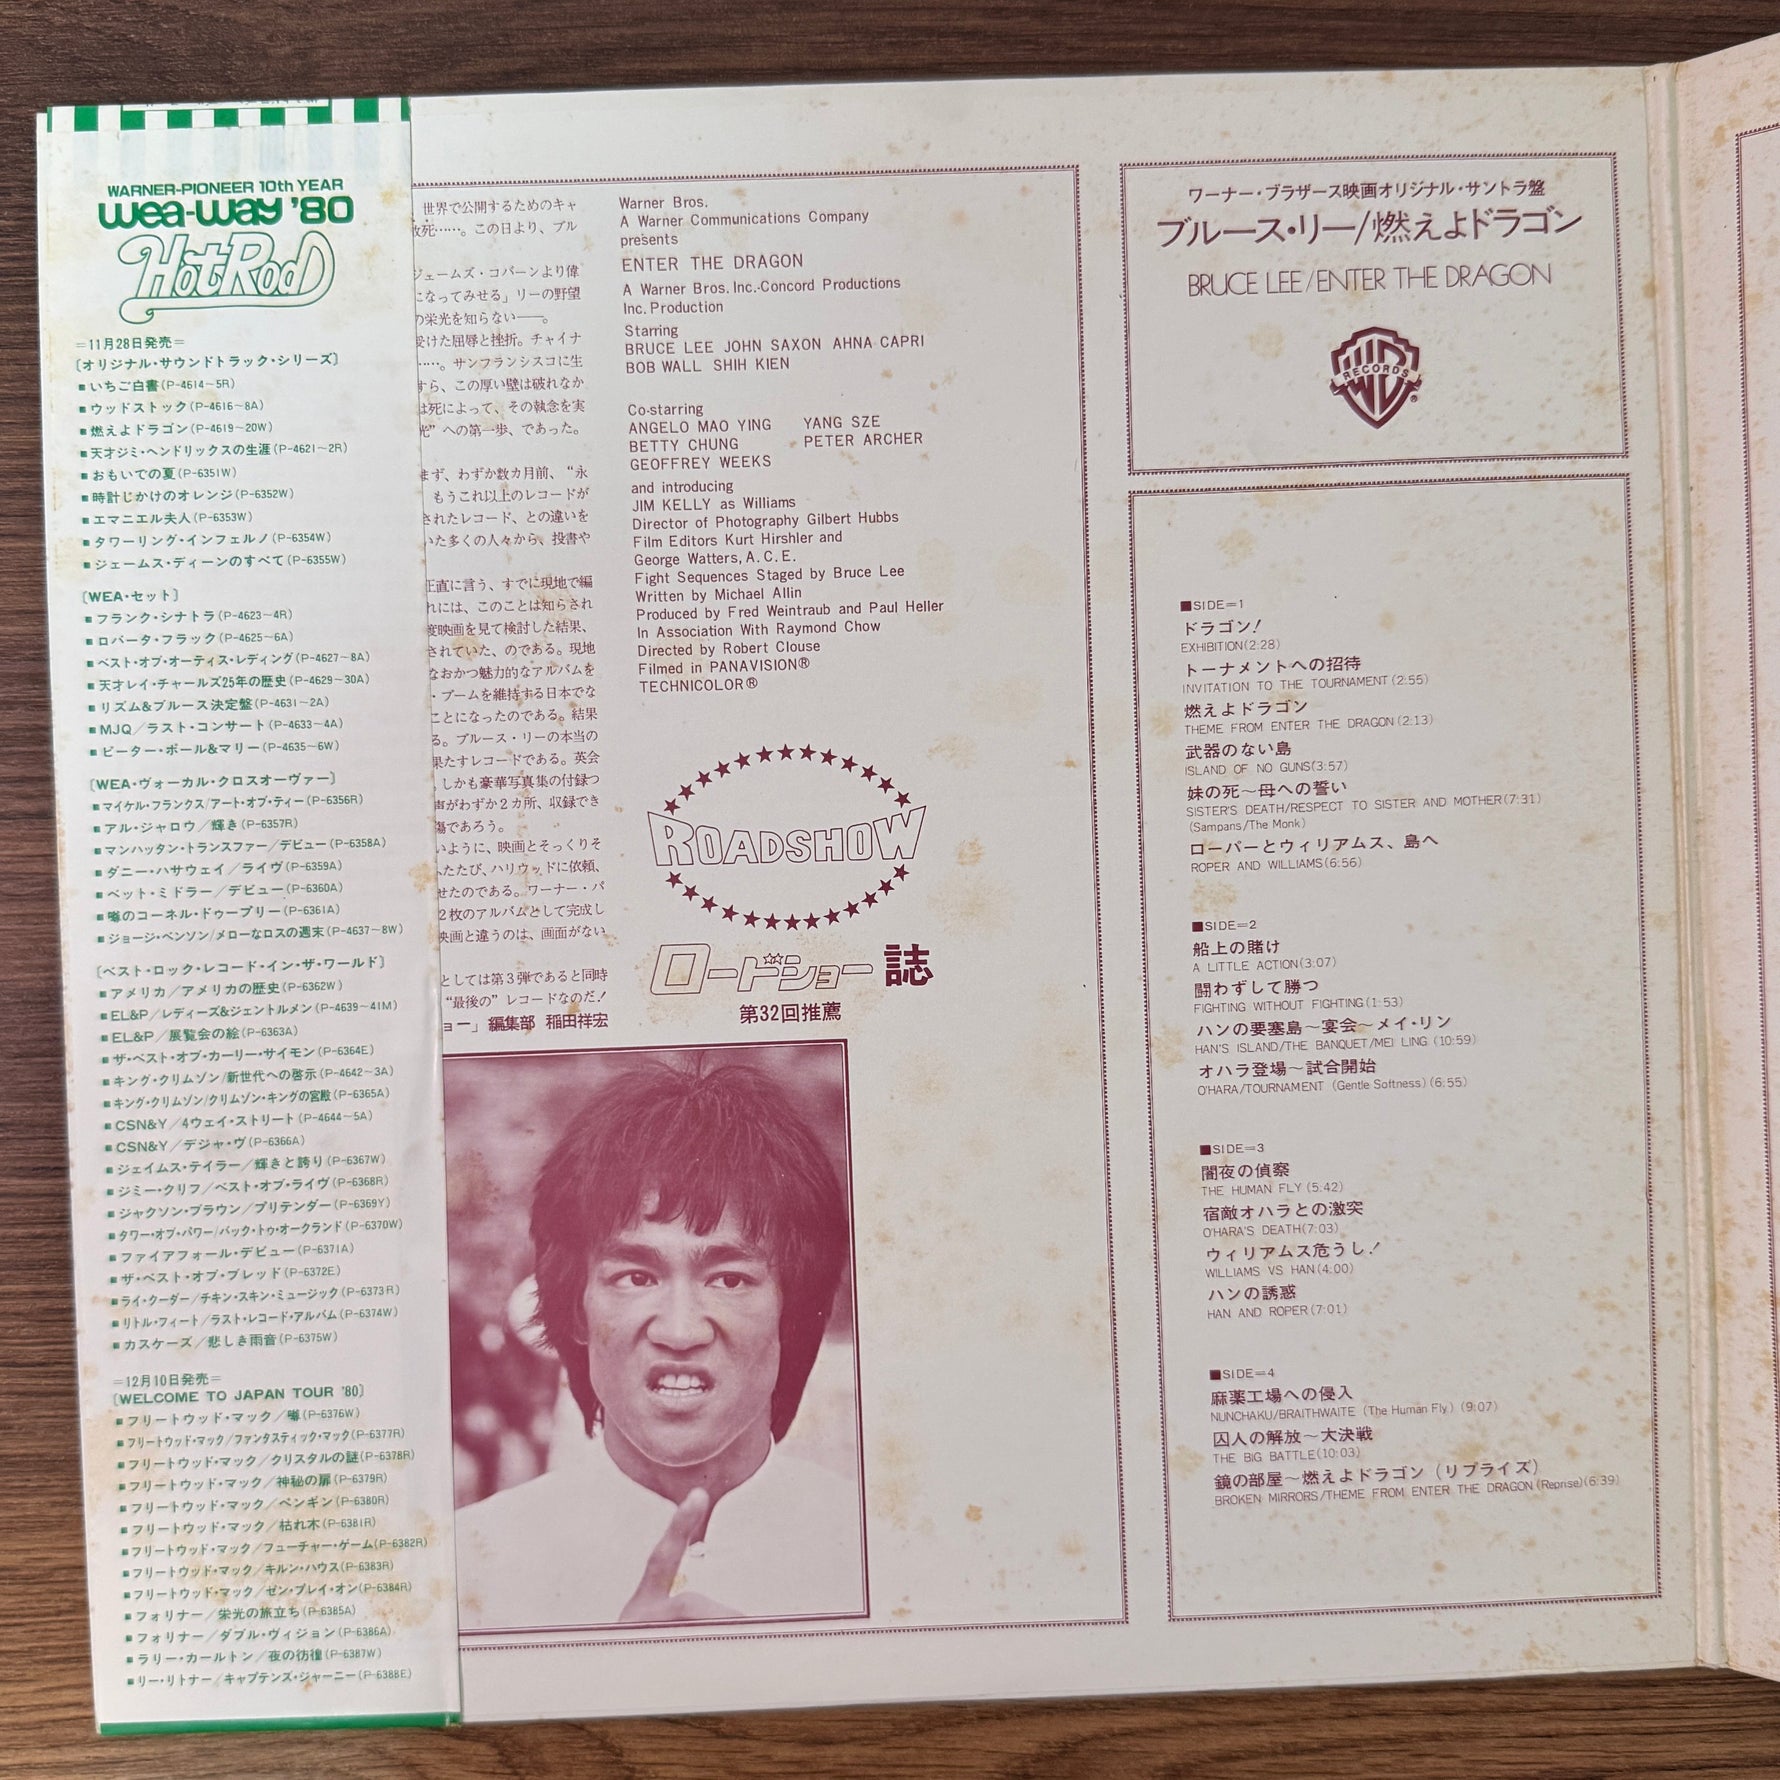 WARNER-PIONEER 10th YEAR
wea-way '80
HotRod
=11月28日発売=
〔オリジナル・サウンドトラック・シリーズ〕
■いちご白書(P-4614〜5R)
■ウッドストック(P-4616〜8A)
■燃えよドラゴン(P-4619〜20W)
■天才ジミ・ヘンドリックスの生涯(P-4621〜2R)
■おもいでの夏(P-6351W)
■時計じかけのオレンジ(P-6352W)
■エマニエル夫人(P-6353W)
■タワーリング・インフェルノ(P-6354W)
■ジェームス・ディーンのすべて(P-6355W)
〔WEA・セット〕
■フランク・シナトラ(P-4623〜4R)
■ロバータ・フラック(P-4625〜6A)
■ベスト・オブ・オーティス・レディング(P-4627〜8A)
■天才レイ・チャールズ25年の歴史(P-4629〜30A)
■リズム&ブルース決定盤(P-4631〜2A)
■MJQ/ラスト・コンサート(P-4633〜4A)
■ピーター・ポール&マリー(P-4635〜6W)
〔WEA・ヴォーカル・クロスオーヴァー〕
■マイケル・フランクス/アート・オブ・ティー(P-6356R)
■アル・ジャロウ/輝き(P-6357R)
■マンハッタン・トランスファー/デビュー(P-6358A)
■ダニー・ハサウェイ/ライヴ(P-6359A)
■ベット・ミドラー/デビュー(P-6360A)
■噂のコーネル・ドゥープリー(P-6361A)
■ジョージ・ベンソン/メローなロスの週末(P-4637〜8W)
〔ベスト・ロック・レコード・イン・ザ・ワールド〕
■アメリカ/アメリカの歴史(P-6362W)
■EL&P/レディーズ&ジェントルメン(P-4639〜41M)
■EL&P/展覧会の絵(P-6363A)
■ザ・ベスト・オブ・カーリー・サイモン(P-6364E)
■キング・クリムゾン/新世代への啓示(P-4642〜3A)
■キング・クリムゾン/クリムゾン・キングの宮殿(P-6365A)
■CSN&Y/4ウェイ・ストリート(P-4644〜5A)
■CSN&Y/デジャ・ヴ(P-6366A)
■ジェイムス・テイラー/輝きと誇り(P-6367W)
■ジミー・クリフ/ベスト・オブ・ライヴ(P-6368R)
■ジャクソン・ブラウン/プリテンダー(P-6369Y)
■タワー・オブ・パワー/バック・トゥ・オークランド(P-6370W)
■ファイアフォール・デビュー(P-6371A)
■ザ・ベスト・オブ・ブレッド(P-6372E)
■ライ・クーダー/チキン・スキン・ミュージック(P-6373R)
■リトル・フィート/ラスト・レコード・アルバム(P-6374W)
■カスケーズ/悲しき雨音(P-6375W)
=12月10日発売=
〔WELCOME TO JAPAN TOUR '80〕
■フリートウッド・マック/噂(P-6376W)
■フリートウッド・マック/ファンタスティック・マック(P-6377R)
■フリートウッド・マック/クリスタルの謎(P-6378R)
■フリートウッド・マック/神秘の扉(P-6379R)
■フリートウッド・マック/ペンギン(P-6380R)
■フリートウッド・マック/枯れ木(P-6381R)
■フリートウッド・マック/フューチャー・ゲーム(P-6382R)
■フリートウッド・マック/キルン・ハウス(P-6383R)
■フリートウッド・マック/ゼン・プレイ・オン(P-6384R)
■フォリナー/栄光の旅立ち(P-6385A)
■フォリナー/ダブル・ヴィジョン(P-6386A)
■ラリー・カールトン/夜の彷徨(P-6387W)
■リー・リトナー/キャプテンズ・ジャーニー(P-6388E)
世界で公開するためのキャ
死……。この日より、ブル
ジェームズ・コバーンより偉
になってみせる」リーの野望
の栄光を知らない——。
受けた屈辱と挫折。チャイナ
……。サンフランシスコに生
すら、この厚い壁は破れなか
は死によって、その執念を実
光”への第一歩、であった。
まず、わずか数カ月前、“永
もうこれ以上のレコードが
されたレコード、との違いを
いた多くの人々から、投書や
正直に言う、すでに現地で編
れには、このことは知らされ
度映画を見て検討した結果、
されていた、のである。現地
なおかつ魅力的なアルバムを
・ブームを維持する日本でな
ことになったのである。結果
る。ブルース・リーの本当の
果たすレコードである。英会
しかも豪華写真集の付録つ
声がわずか2カ所、収録でき
傷であろう。
いように、映画とそっくりそ
ふたたび、ハリウッドに依頼、
せたのである。ワーナー・パ
2枚のアルバムとして完成し
映画と違うのは、画面がない
としては第3弾であると同時
“最後の”レコードなのだ!
ョー」編集部 稲田祥宏
Warner Bros.
A Warner Communications Company
presents
ENTER THE DRAGON
A Warner Bros. Inc.-Concord Productions
Inc. Production
Starring
BRUCE LEE JOHN SAXON AHNA CAPRI
BOB WALL SHIH KIEN
Co-starring
ANGELO MAO YING YANG SZE
BETTY CHUNG PETER ARCHER
GEOFFREY WEEKS
and introducing
JIM KELLY as Williams
Director of Photography Gilbert Hubbs
Film Editors Kurt Hirshler and
George Watters, A.C.E.
Fight Sequences Staged by Bruce Lee
Written by Michael Allin
Produced by Fred Weintraub and Paul Heller
In Association With Raymond Chow
Directed by Robert Clouse
Filmed in PANAVISION®
TECHNICOLOR®
ROADSHOW
ロードショー誌
第32回推薦
ワーナー・ブラザース映画オリジナル・サントラ盤
ブルース・リー/燃えよドラゴン
BRUCE LEE/ENTER THE DRAGON
WB
RECORDS
®
■SIDE=1
ドラゴン!
EXHIBITION(2:28)
トーナメントへの招待
INVITATION TO THE TOURNAMENT(2:55)
燃えよドラゴン
THEME FROM ENTER THE DRAGON(2:13)
武器のない島
ISLAND OF NO GUNS(3:57)
妹の死〜母への誓い
SISTER'S DEATH/RESPECT TO SISTER AND MOTHER(7:31)
(Sampans/The Monk)
ローパーとウィリアムス、島へ
ROPER AND WILLIAMS(6:56)
■SIDE=2
船上の賭け
A LITTLE ACTION(3:07)
闘わずして勝つ
FIGHTING WITHOUT FIGHTING(1:53)
ハンの要塞島〜宴会〜メイ・リン
HAN'S ISLAND/THE BANQUET/MEI LING (10:59)
オハラ登場〜試合開始
O'HARA/TOURNAMENT (Gentle Softness)(6:55)
■SIDE=3
闇夜の偵察
THE HUMAN FLY(5:42)
宿敵オハラとの激突
O'HARA'S DEATH(7:03)
ウィリアムス危うし!
WILLIAMS VS HAN(4:00)
ハンの誘惑
HAN AND ROPER(7:01)
■SIDE=4
麻薬工場への侵入
NUNCHAKU/BRAITHWAITE (The Human Fly) (9:07)
囚人の解放〜大決戦
THE BIG BATTLE(10:03)
鏡の部屋〜燃えよドラゴン (リプライズ)
BROKEN MIRRORS/THEME FROM ENTER THE DRAGON(Reprise)(6:39)